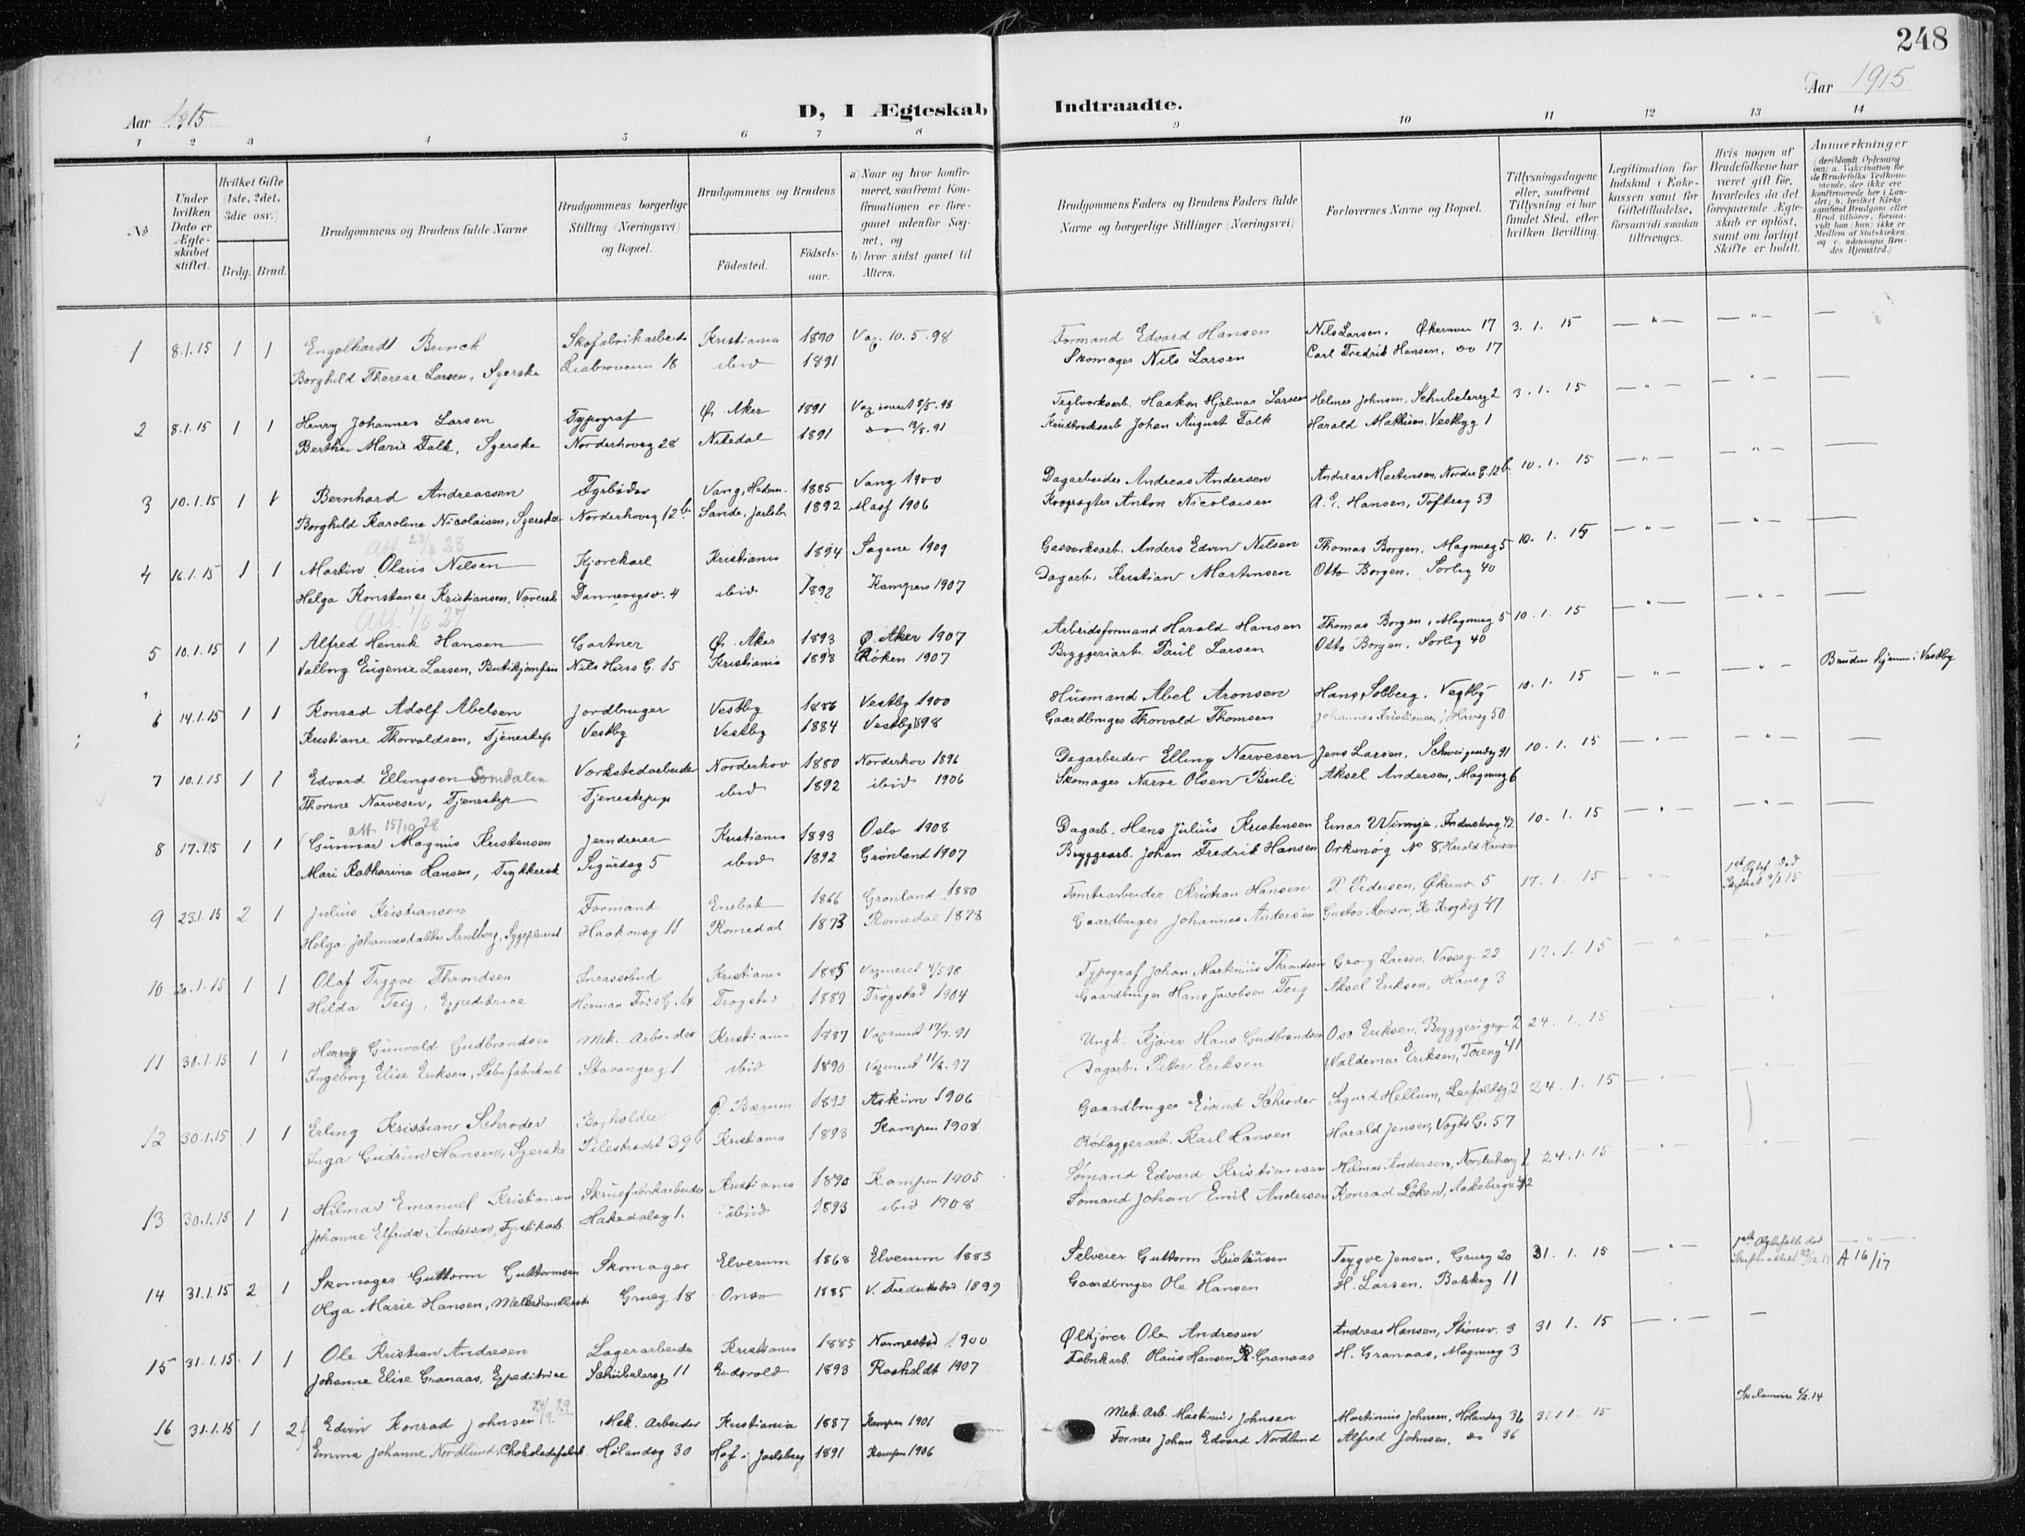 248
Aar 1915
D, I Ægteskab Indtraadte.
Aar 1915
1 2 3 4 5 6 7 8 9 10 11 12 13 14
No
Under hvilken Dato er Ægteskabet stiftet.
Hvilket Gifte (1ste, 2det, 3die osv.)
Brdg. Brud.
Brudgommens og Brudens fulde Navne
Brudgommens borgerlige Stilling (Næringsvei) og Bopæl.
Brudgommens og Brudens
Fødested. Fødselsaar.
a) Naar og hvor konfirmeret, saafremt Konfirmationen er foregaaet udenfor Sognet, og
b) hvor sidst gaaet til Alters.
Brudgommens Faders og Brudens Faders fulde Navne og borgerlige Stillinger (Næringsvei)
Forlovernes Navne og Bopæl.
Tillysningsdagene eller, saafremt Tillysning ei har fundet Sted, efter hvilken Bevilling.
Legitimation for Indskud i Enkekassen samt for Giftetilladelse, forsaavidt saadan tiltrænges.
Hvis nogen af Brudefolkene har været gift før, hvorledes da det foregaaende Ægteskab er opløst, samt om lovligt Skifte er holdt.
Anmærkninger
(deriblandt Oplysning om: a. Vakcination for de Brudefolks Vedkommende, der ikke ere konfirmerede her i Landet; b. hvilket Kirkesamfund Brudgom eller Brud tilhører, forsaavidt han (hun) ikke er Medlem af Statskirken, og c. udensogns Brudes Hjemsted.)
1 8.1.15 1 1 Engelhardt Bunck Skofabrikarbeider Kristiania 1890 Vaz. 10.5.98 Formand Edvard Hansen Nils Larsen, Økernvei 17 3. 1. 15
Borghild Therese Larsen, Syerske Liabroveien 18 ibid 1891 Skomager Nils Larsen Carl Fredrik Hansen, do 17
2 8.1.15 1 1 Henry Johannes Larsen Typograf Ø. Aker 1891 Teglverksarb. Haakon Hjalmar Larsen Helmer Johnsen, Schubelersg 2 3. 1. 15
Berthe Marie Falk, Syerske Norderhovsg 28 Nitedal 1891 Johan August Falk Harald Mathisen, Vestbyg 1
3 10.1.15 1 1 Bernhard Andreassen Fyrbøder Vang, Hedem. 1885 Vang 1900 Dagarbeider Andreas Andersen Andreas Martinsen, Nordre G. 12b 10. 1. 15
Borghild Karoline Nicolaisen, Syerske Norderhovsg 12b Sande, Jarlsb. 1892 Anton Nicolaisen Hansen, Toftesg 59
Att 23/8 28
4 16.1.15 1 1 Martin Olaus Nilsen Kjørekarl Kristiania 1894 Sagene 1909 Gasverksarb. Anders Edvin Nilsen Thomas Borgen, Magnusg 5 10. 1. 15
Helga Konstanse Kristiansen, Væverske Dannevigsv. 4 ibid 1892 Kampen 1907 Dagarb. Kristian Martinsen Otto Borgen, Sørlig 40
Att. 1/6 27
5 10.1.15 1 1 Alfred Henrik Hansen Gartner Ø. Aker 1893 Ø. Aker 1907 Arbeidsformand Harald Hansen Thomas Borgen, Magnusg 5 10. 1. 15
Valborg Eugenie Larsen, Butikjomfru Nils Huus G. 15 Kristiania 1893 Røken 1907 Bryggeriarb. Paul Larsen Otto Borgen, Sørlig 40
6 14.1.15 1 1 Konrad Adolf Abelsen Jordbruger Vestby 1886 Vestby 1900 Husmand Abel Aronsen Hans Solberg, Vestby 10. 1. 15 Brudens hjem i Vestby
Kristiane Thorvaldsen, Tjenestep Vestby Vestby 1884 Vestby 98 Gaardbruger Thorvald Thomsen Johannes Kristiansen, Havsg 50
7 10.1.15 1 1 Edvard Ellingsen Somdalen Verkstedarbeider Norderhov 1880 Norderhov 1896 Dagarbeider Elling Narvesen Jens Larsen, Schweigaardsg 91 10. 1. 15
Thorine Narvesen, Tjenestep Tjenestepige ibid 1892 ibid 1906 Skomager Narve Olsen Bruli Aksel Andersen, Magnusg 6
att 15/10 28
8 17.1.15 1 1 Gunnar Magnus Kristensen Jerndreier Kristiania 1893 Oslo 1908 Dagarb. Hans Julius Kristensen Einar 42 10. 1. 15
Mari Katharina Hansen, Trykkersk Sigurdsg 5 ibid 1892 Grønland 1907 Bryggearb. Johan Fredrik Hansen No 8, Harald Hansen
9 23.1.15 2 1 Julius Kristiansen Formand Enebak 1866 Grønland 1880 Tomtearbeider Kristian Hansen P. Pedersen, Økernv. 5 17. 1. 15
Helga Johannesdatter Arnlberg, Haakonsg 11 Romedal 1873 Romedal 1878 Gaardbruger Johannes Andersen Gustav Monsen, 47
10 20.1.15 1 1 Olaf Trygve Throndsen Incassobud Kristiania 1885 Vazineret 4/5 98 Typograf Johan Martinius Throndsen Georg Larsen, Vossg. 22 17. 1. 15
Hilda Teig, Expeditrice Herman Foss G. 14 Trøgstad 1889 Trøgstad 1904 Gaardbruger Hans Jacobsen Teig Aksel Eriksen, Havsg 3
11 30.1.15 1 1 Henry Gunvald Gudbrandsen Mek. Arbeider Kristiania 1887 Ungk. Kjører Hans Gudbrandsen Eriksen, Bryggerig 2 24. 1. 15
Ingeborg Elise Eriksen, Stavangerg 1 ibid 1890 Dagarb. Peter Eriksen Waldemar Eriksen, Tøieng 41
12 30.1.15 1 1 Erling Kristian Schrøder Bogholder Ø. Bærum 1892 Askim 1906 Gaardbruger Eivind Schrøder Sigurd Hellum, 2 24. 1. 15
Inga Gudrun Hansen, Syerske Pilestrædet 39b Kristiania 1893 Kampen 1908 Rørlæggerarb. Karl Hansen Harald Jensen, Vogts G. 57
13 30.1.15 1 1 Hilmar Emanuel Kristiansen Skruefabrikarbeider Kristiania 1890 Kampen 1905 Sømand Edvard Kristiansen Hilmar Andersen, Norderhovg 1 24. 1. 15
Johanne Elfrida Andersen, Hakedalsg 1. ibid 1893 ibid 1908 Sømand Johan Emil Andersen Konrad Løken, Aakebergv 42
14 31.1.15 2 1 Skomager Guttorm Guttormsen Skomager Elverum 1868 Elverum 1883 Selveier Guttorm Kristensen Trygve Jensen, Grueg 20 31. 1. 15 A 16/17
Olga Marie Hansen, Melkehandlerske Grueg 18 Onsø 1885 V. Fredrikstad 1899 Gaardbruger Ole Hansen H. Larsen, Bakkeg 11
15 31.1.15 1 1 Ole Kristian Andresen Lagerarbeider Kristiania 1885 1900 Ølkjører Ole Andresen Andreas Hansen, Strømsv. 3 31 1. 15
Johanne Elise Granaas, Expeditrice Schübelersg 11 Eidsvold 1893 Raaholdt 1907 Fabrikarb. Olaus Hansen Granaas H. Granaas, Magnusg 3
16 31.1.15 1 2 Edvin Konrad Johnsen Mek. Arbeider Kristiania 1887 Kampen 1901 Mek. Arb. Martinius Johnsen Martinius Johnsen, Hølandsg 36 31. 1. 15
Emma Johanne Nordlund, Chokoladefabrik Hølandsg 30 Hof i Jarlsberg 1891 Kampen 1906 Former Johan Edvard Nordlund Alfred Johnsen, do 36